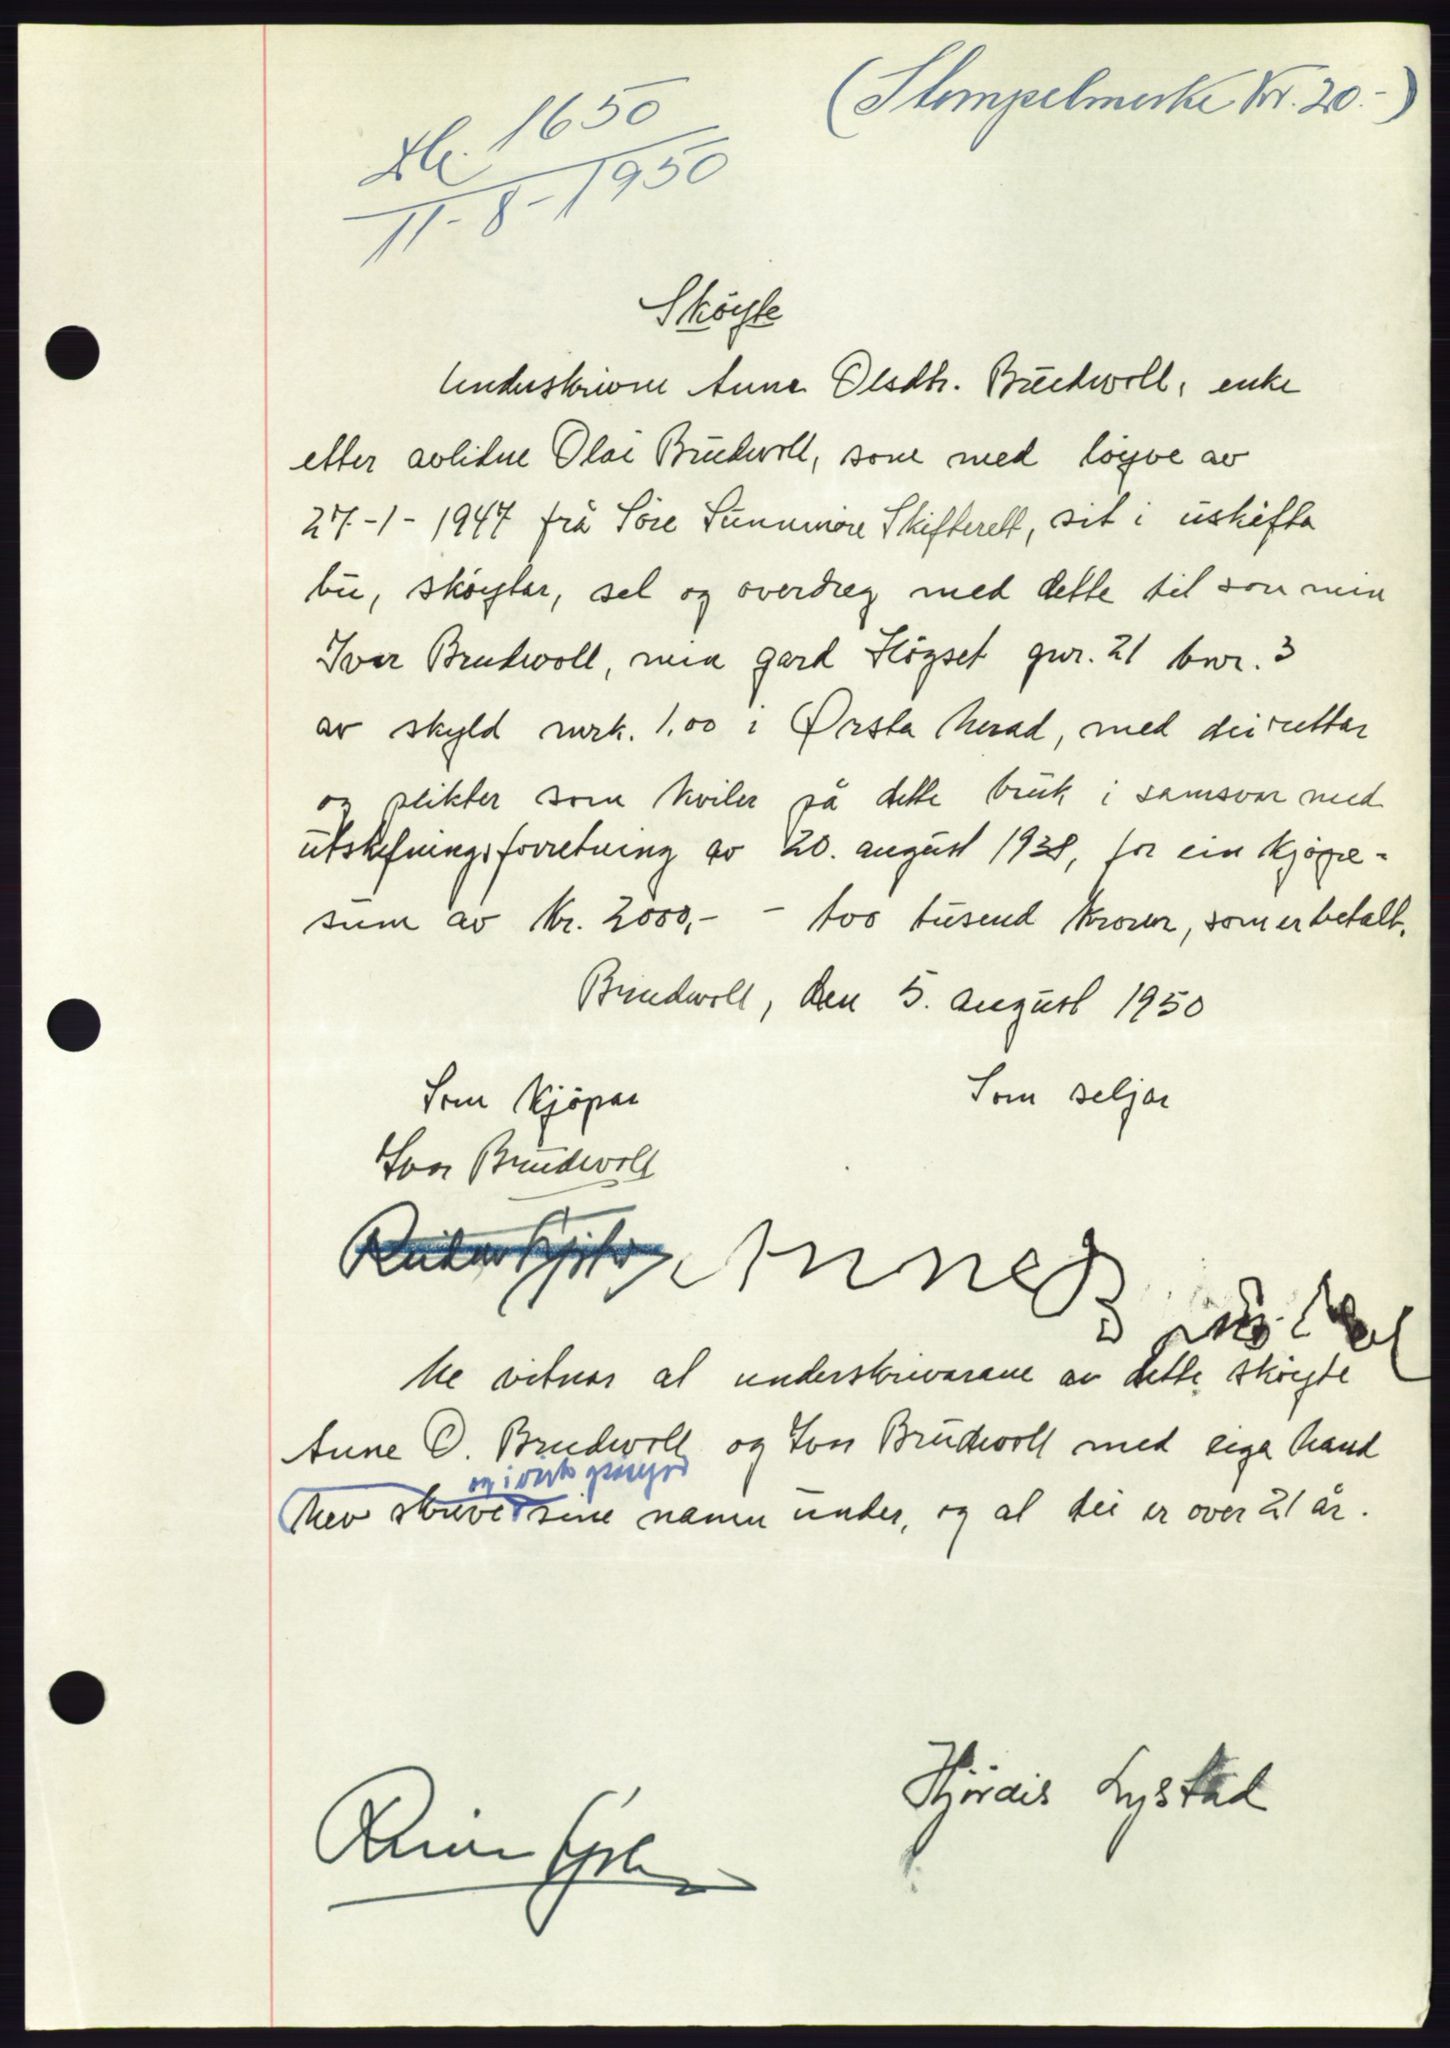 (Stempelmerke kr. 20.-)
1650
11-8-1950
Sköyte
Underskrivne Anne Olsdtr. Brudwoll, enke
etter avlidne Olai Brudwoll, som med löyve av
27-1-1947 frå Söre Sunnmöre Skifterett, sit i uskifta
bu, sköytar, sel og overdreg med dette til son min
Ivar Brudwoll, min gard Högset gnr. 21 bnr. 3
av skyld mrk. 1,00 i Ørsta herad, med dei rettar
og plikter som kviler på dette bruk i samsvar med
utskiftningsforretning av 20. august 1938, for ein kjöpe-
sum av kr. 2000,- - too tusend kroner, som er betalt.
Brudwoll, den 5. august 1950
Som kjöpar Som seljar
Ivar Brudwoll
Anne
Me vitnar at underskrivarane av dette sköyte
Anne O. Brudwoll og Ivar Brudwoll med eiga hand
og i vårt
hev skrive sine namn under, og at dei er over 21 år.
Hjördis Lystad